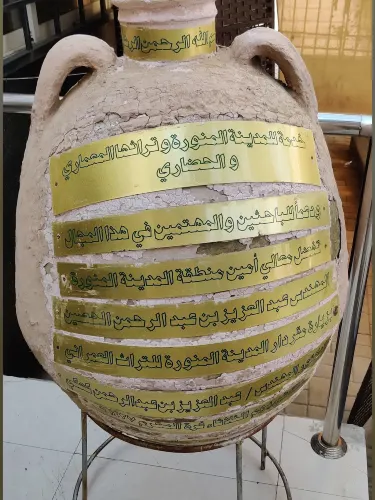 بسم الله الرحمن الرحيم
خدمة للمدينة المنورة و تراثها المعماري
و الحضاري
ودعماً للباحثين و المهتمين في هذا المجال
تفضل معالي أمين منطقة المدينة المنورة
المهندس عبد العزيز بن عبد الرحمن الحصين
بزيارة مقر دار المدينة المنورة للتراث العمراني
المهندس / عبد العزيز بن عبدالرحمن